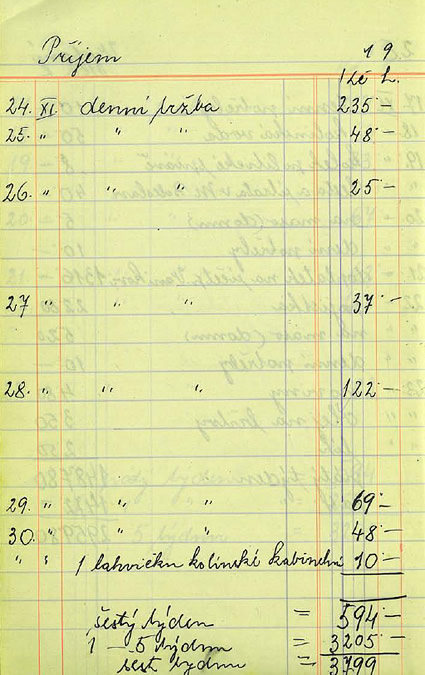 Příjem 19
Kč h.
24. XI. denní tržba 235 –
25. " " " 48 –
26. " " " 25 –
27 " " " 37 –
28. " " " 122 –
29. " " " 69 –
30. " " " 48 –
" " 1 lahvičku kolínské 10 –
šestý týden = 594 –
1 – 5 týdnu = 3205 –
šest týdnu = 3799